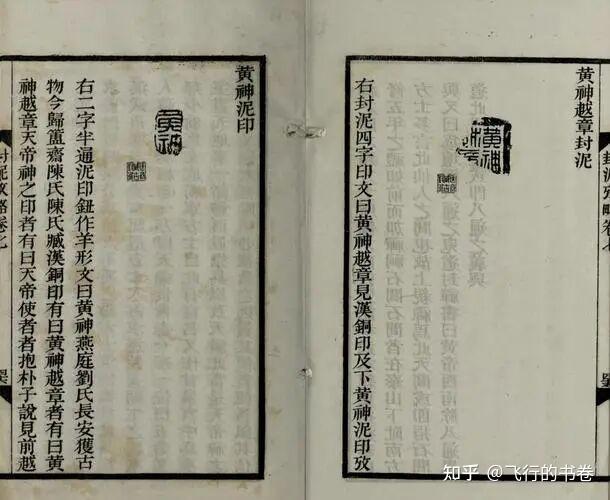 封泥攷略卷七
黃神越章封泥
黃神
右封泥四字印文曰黃神越章見漢銅印及下黃神泥印攷
黃神泥印
黃神
右二字半通泥印鈕作羊形文曰黃神燕庭劉氏長安獲古
物今歸簠齋陳氏陳氏臧漢銅印有曰黃神越章者有曰黃
神越章天帝神之印者有曰天帝使者者抱朴子說見前越
封泥攷略卷七
知乎 @飞行的书卷